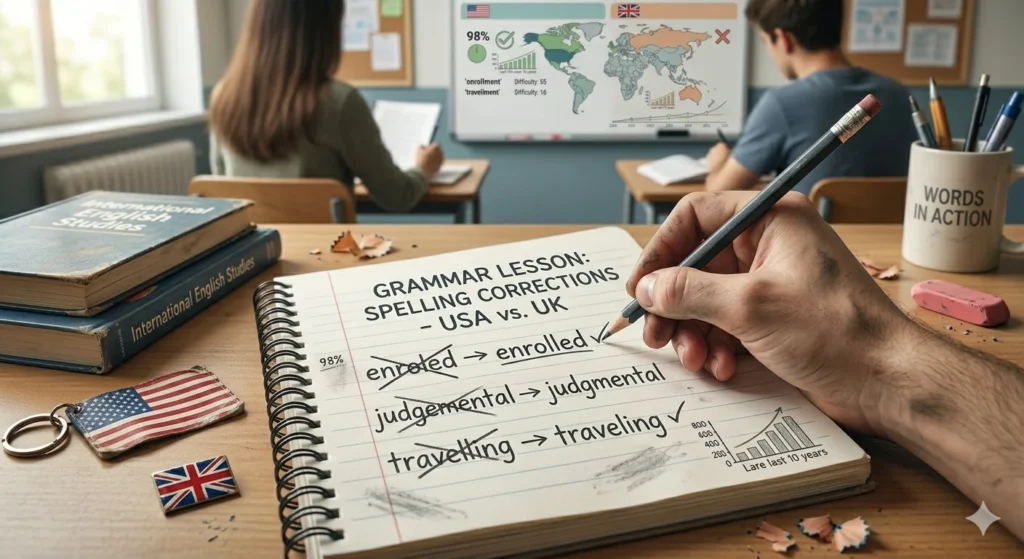 98%
Difficulty: 55
Difficulty: 16
WORDS
IN ACTION
International
English
Studies
International English Studies
GRAMMAR LESSON:
SPELLING CORRECTIONS
– USA vs. UK
98%
enroled → enrolled ✓
judgemental → judgmental
travelling → traveling ✓
800
600
400
260
0
Lare last 10 years